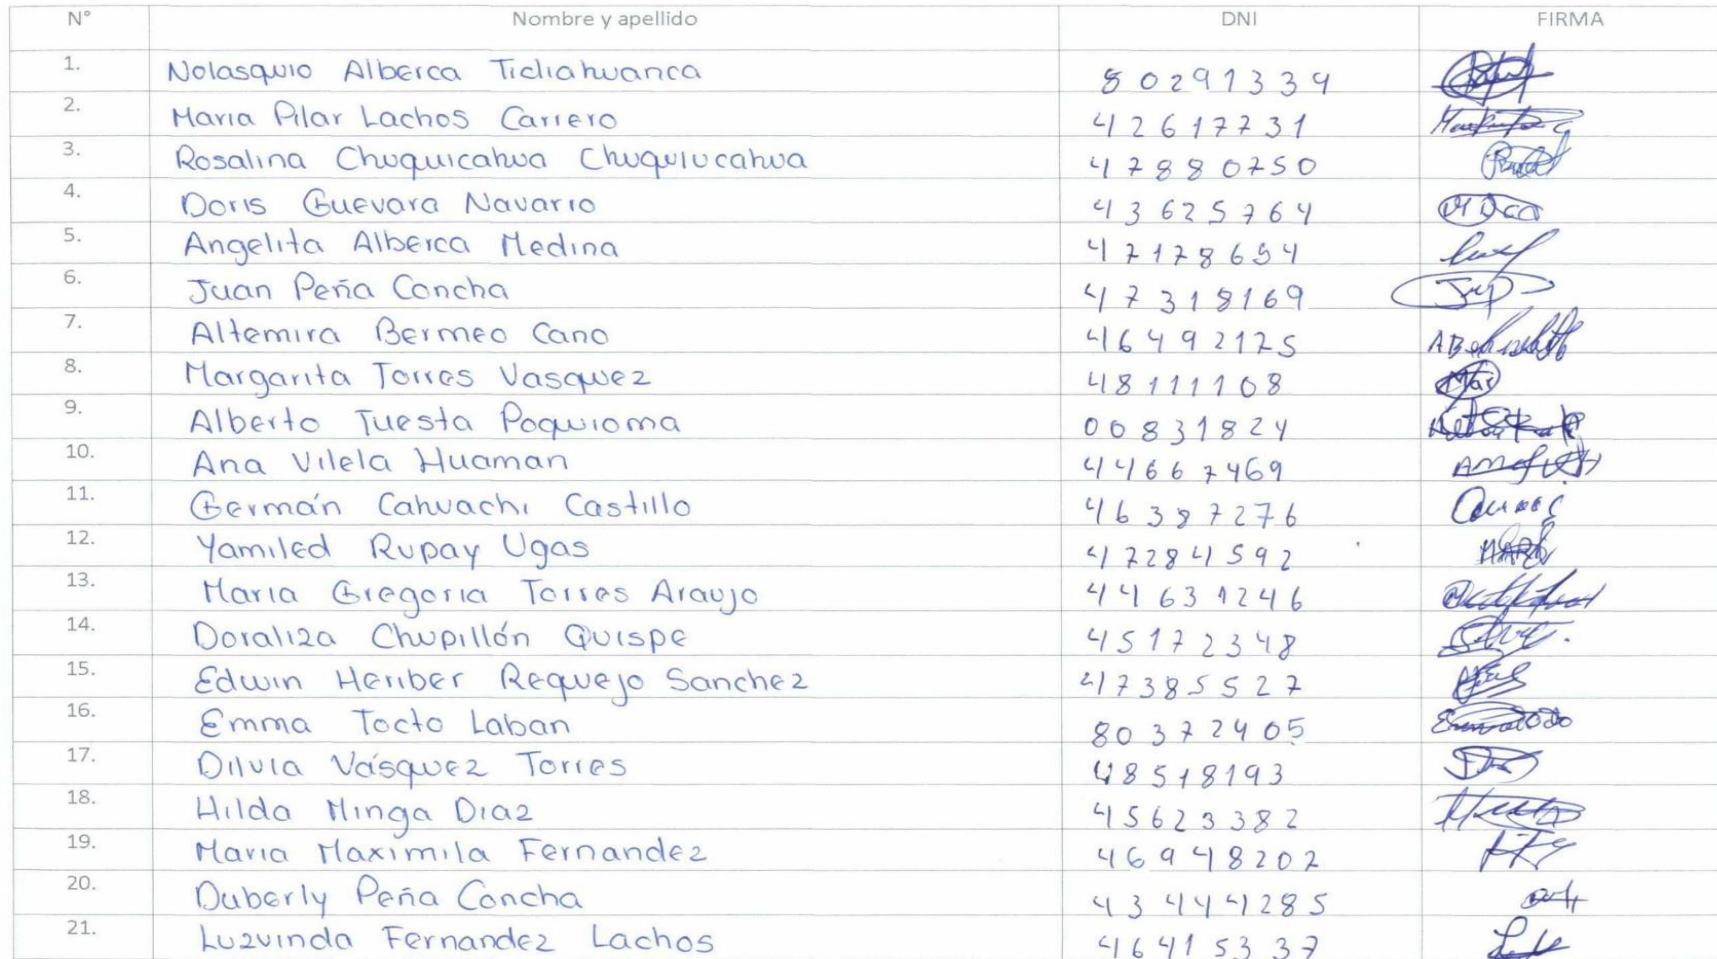 N° Nombre y apellido DNI FIRMA
1. Nolasquio Alberca Ticliahuanca 80291339
2. Maria Pilar Lachos Carrero 42617731
3. Rosalina Chuquicahua Chuquiucahua 47880750
4. Doris Guevara Navarro 43625764
5. Angelita Alberca Medina 47178654
6. Juan Peña Concha 47318169
7. Altemira Bermeo Cano 46492175
8. Margarita Torres Vasquez 48111108
9. Alberto Tuesta Poquioma 00831824
10. Ana Vilela Huaman 44667469
11. Germán Cahuachi Castillo 46387276
12. Yamiled Rupay Ugas 47284592
13. Maria Gregoria Torres Araujo 44631246
14. Doraliza Chupillón Quispe 45172348
15. Edwin Heriber Requejo Sanchez 47385527
16. Emma Tocto Laban 80372405
17. Dilvia Vásquez Torres 48518193
18. Hilda Minga Diaz 45623382
19. Maria Maximila Fernandez 46948202
20. Duberly Peña Concha 43444285
21. Luzvinda Fernandez Lachos 46415337